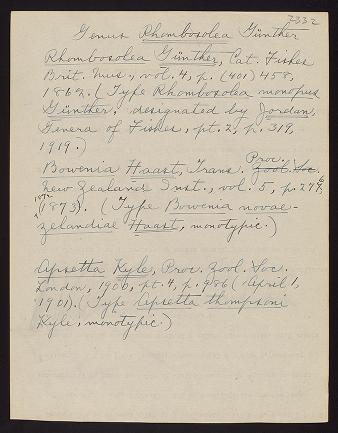 2332
Genus Rhombosolea Günther
Rhombosolea Günther, Cat. Fishes
Brit. Mus., vol. 4, p. (401) 458,
1862. (Type Rhombosolea monopus
Günther, designated by Jordan,
Genera of Fishes, pt. 2, p. 319,
1919.)
Bowenia Haast, Trans. Proc. Zool. Soc.
New Zealand Inst., vol. 5, p. 277,
1872 (1873). (Type Bowenia novae-
zelandiae Haast, monotypic.)
Apsetta Kyle, Proc. Zool. Soc.
London, 1900, pt. 4, p. 986 (April 1,
1901). (Type Apsetta thompsoni
Kyle, monotypic.)